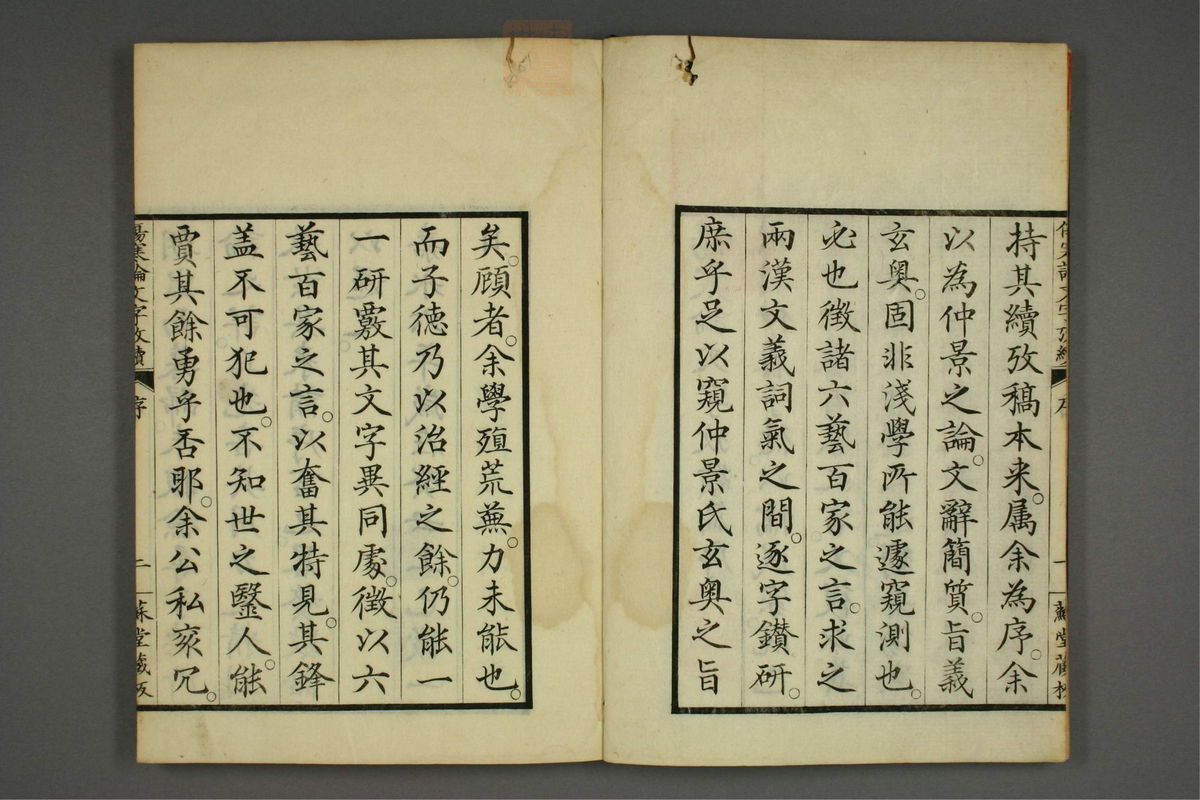 持其續攷稿本来。属余為序。余
以為仲景之論。文辭簡質。旨義
玄奥。固非淺學所能遽窺測也。
必也徴諸六藝百家之言。求之
兩漢文義詞氣之間。逐字鑚研。
庶乎足以窺仲景氏玄奥之旨
矣。顧者。余學殖荒蕪。力未能也。
而子德乃以治經之餘。仍能一
一研覈其文字異同處。徴以六
藝百家之言。以奮其特見。其鋒
盖不可犯也。不知世之醫人。能
賈其餘勇乎否耶。余公私衮冗。
傷寒論文字攷續 序 二 蘇堂藏版